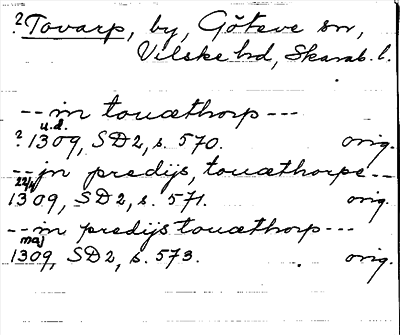 ? Tovarp, by, Göteve sn,
Vilske hd, Skarab. l.
-- in touæthorp ---
u.d.
? 1309, SD2, s. 570. orig.
-- jn predijs, touæthorpe --
22/4
1309, SD2, s. 571. orig.
-- in predijs touæthorp ---
maj
1309, SD2, s. 573. orig.